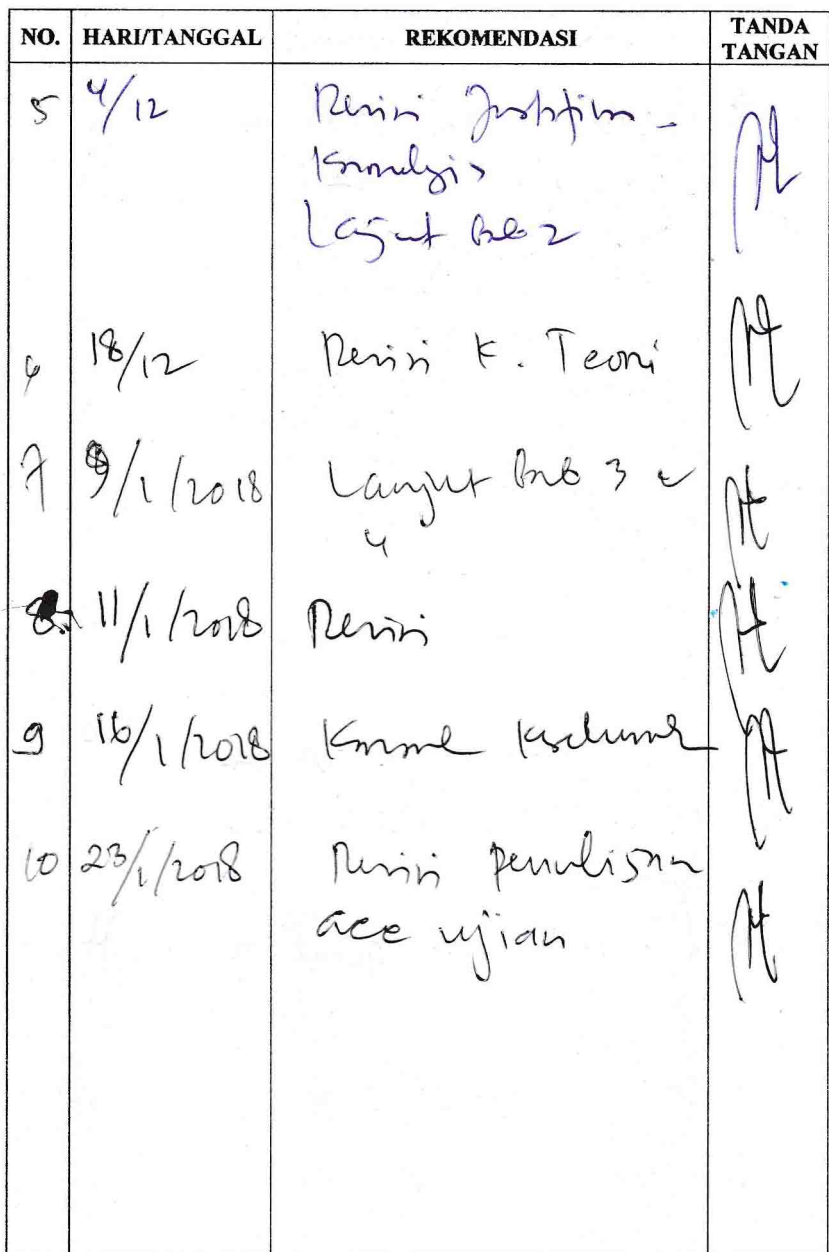 NO. HARI/TANGGAL REKOMENDASI TANDA TANGAN
5 4/12 Revisi Justifikasi -
Kronologis
Lanjut Bab 2
6 18/12 Revisi K. Teori
7 9/1/2018 Lanjut Bab 3 &
4
8. 11/1/2018 Revisi
9 16/1/2018
10 23/1/2018 Revisi penulisan
acc ujian